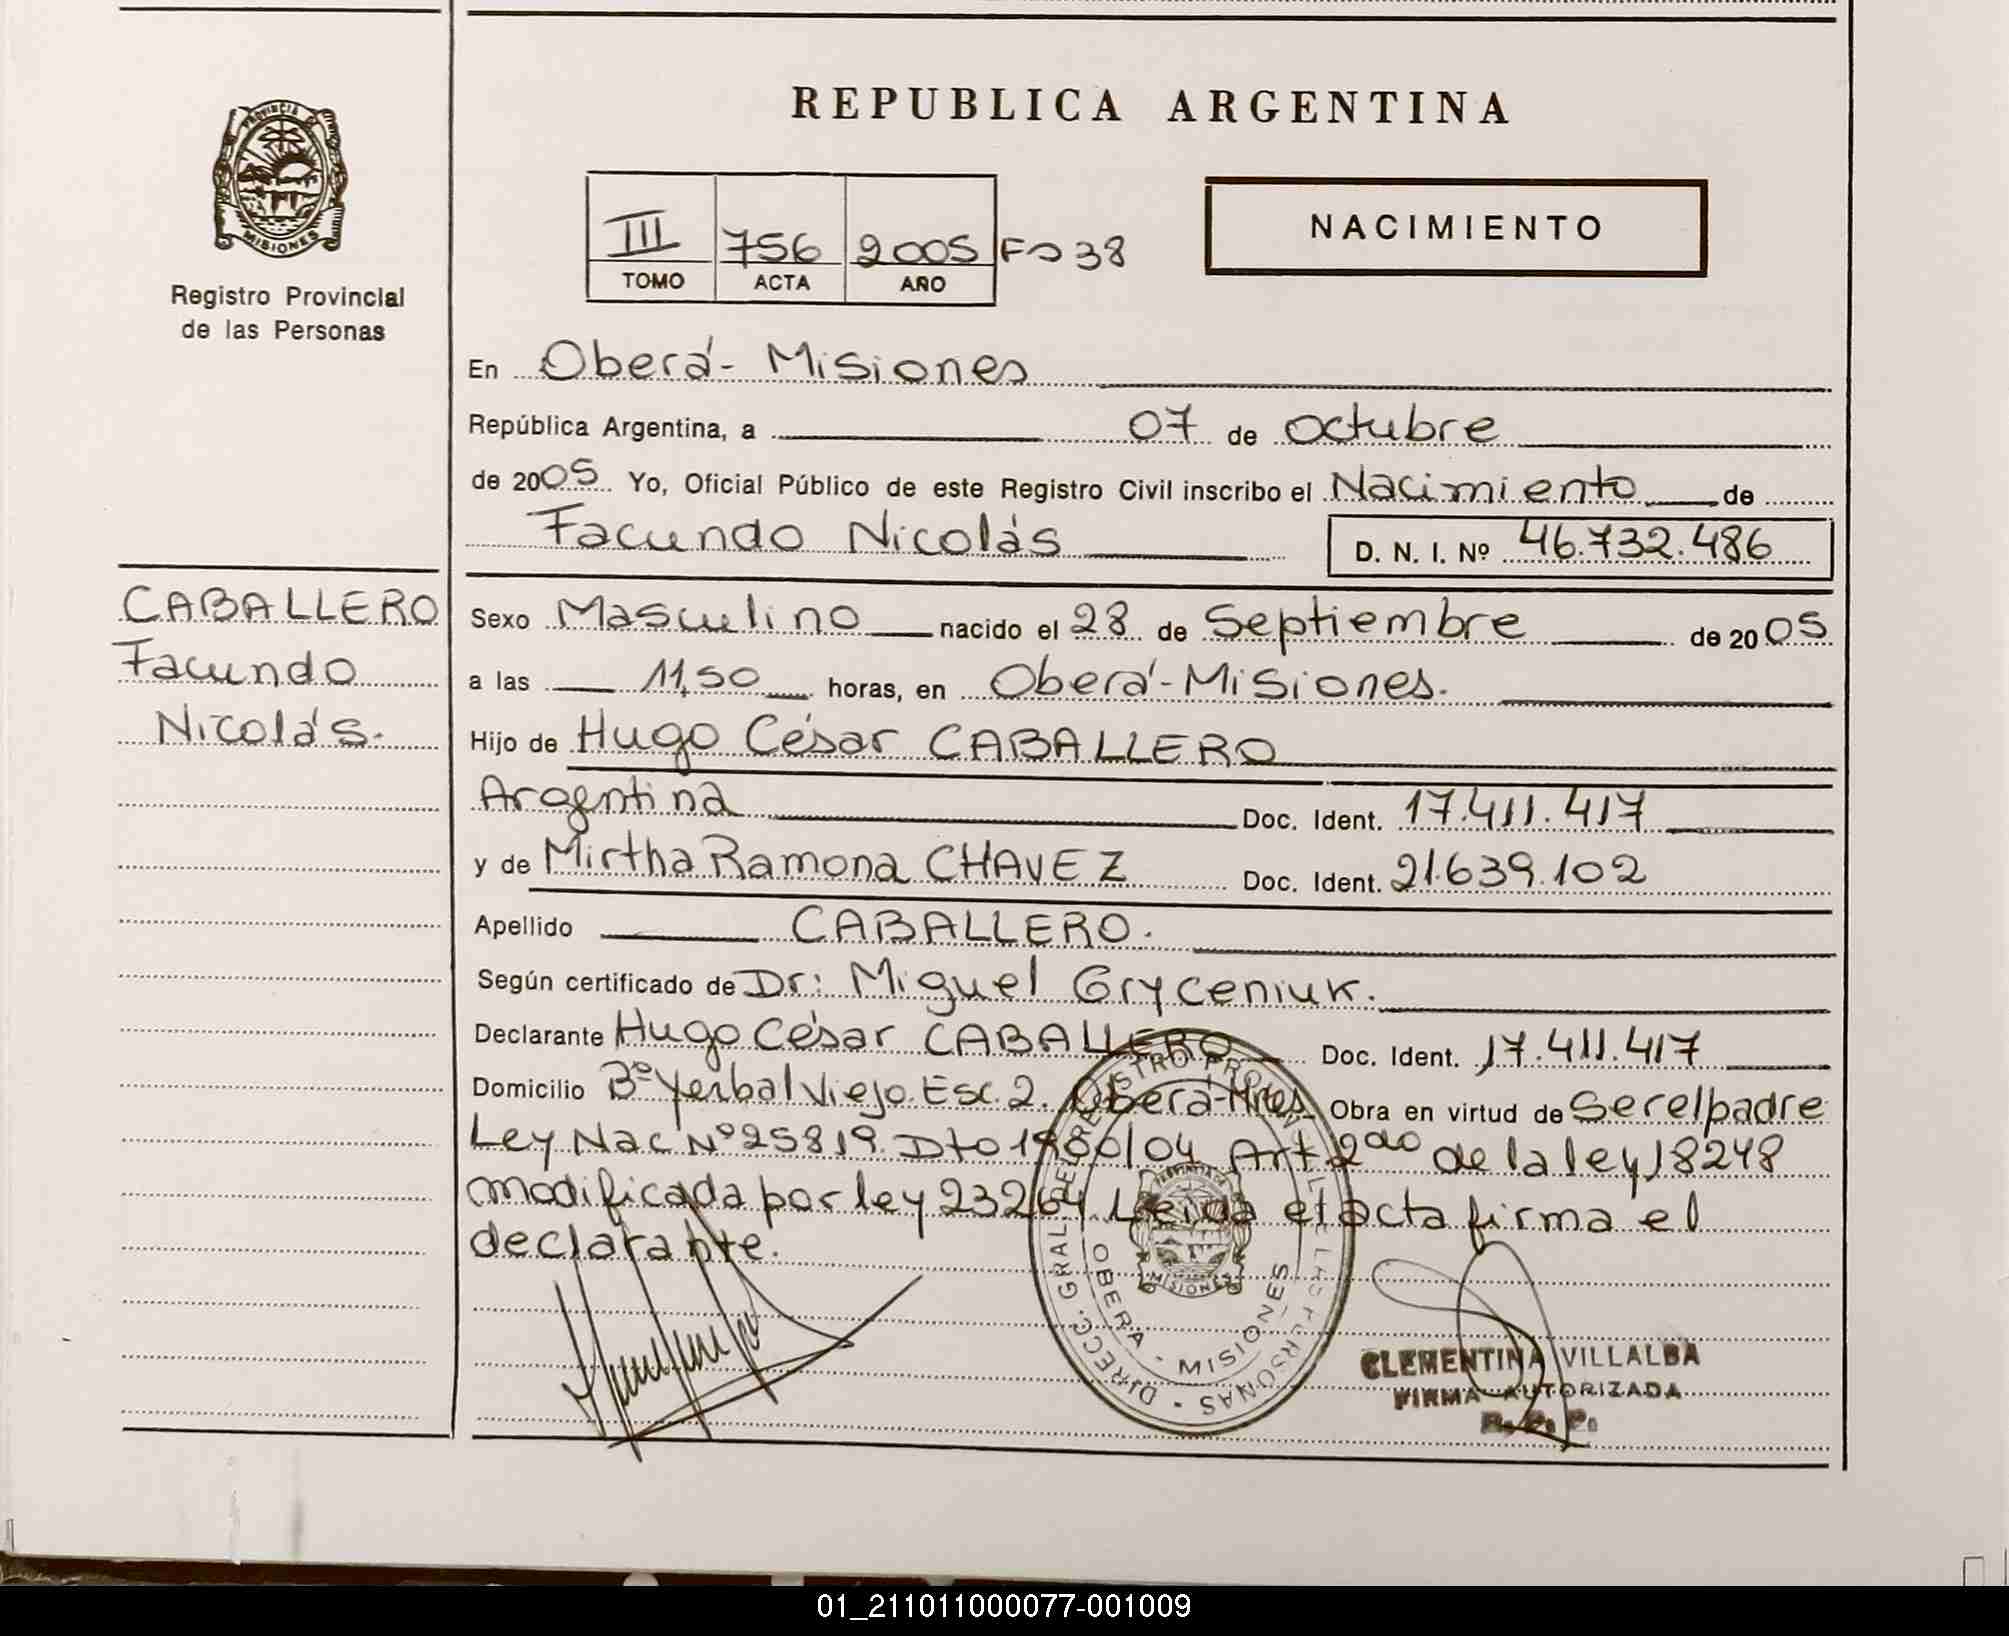 REPUBLICA ARGENTINA
PROVINCIA DE
MISIONES
Registro Provincial
de las Personas
NACIMIENTO
III 756 2005 Fº 38
TOMO ACTA AÑO
En Oberá - Misiones
República Argentina, a 07 de octubre
de 2005 Yo, Oficial Público de este Registro Civil inscribo el Nacimiento de
Facundo Nicolás D. N. I. Nº 46.732.486
CABALLERO
Facundo
Nicolás.
Sexo Masculino nacido el 28 de Septiembre de 2005
a las 11,50 horas, en Oberá - Misiones.
Hijo de Hugo César CABALLERO
Argentina Doc. Ident. 17.411.417
y de Mirtha Ramona CHAVEZ Doc. Ident. 21.639.102
Apellido CABALLERO.
Según certificado de Dr: Miguel Gryceniuk.
Declarante Hugo César CABALLERO Doc. Ident. 17.411.417
Domicilio Bº Yerbal Viejo Esc. 2. Oberá - Mnes Obra en virtud de Ser el padre
Ley Nac Nº 25819. Dto 1980/04 Art 2do de la ley 18248
modificada por ley 23264 Leída el acta firma el
declarante.
DIRECC. GRAL. DEL REGISTRO PROVINCIAL DE LAS PERSONAS
OBERA - MISIONES
MISIONES
CLEMENTINA VILLALBA
FIRMA AUTORIZADA
R. P. P.
01_211011000077-001009